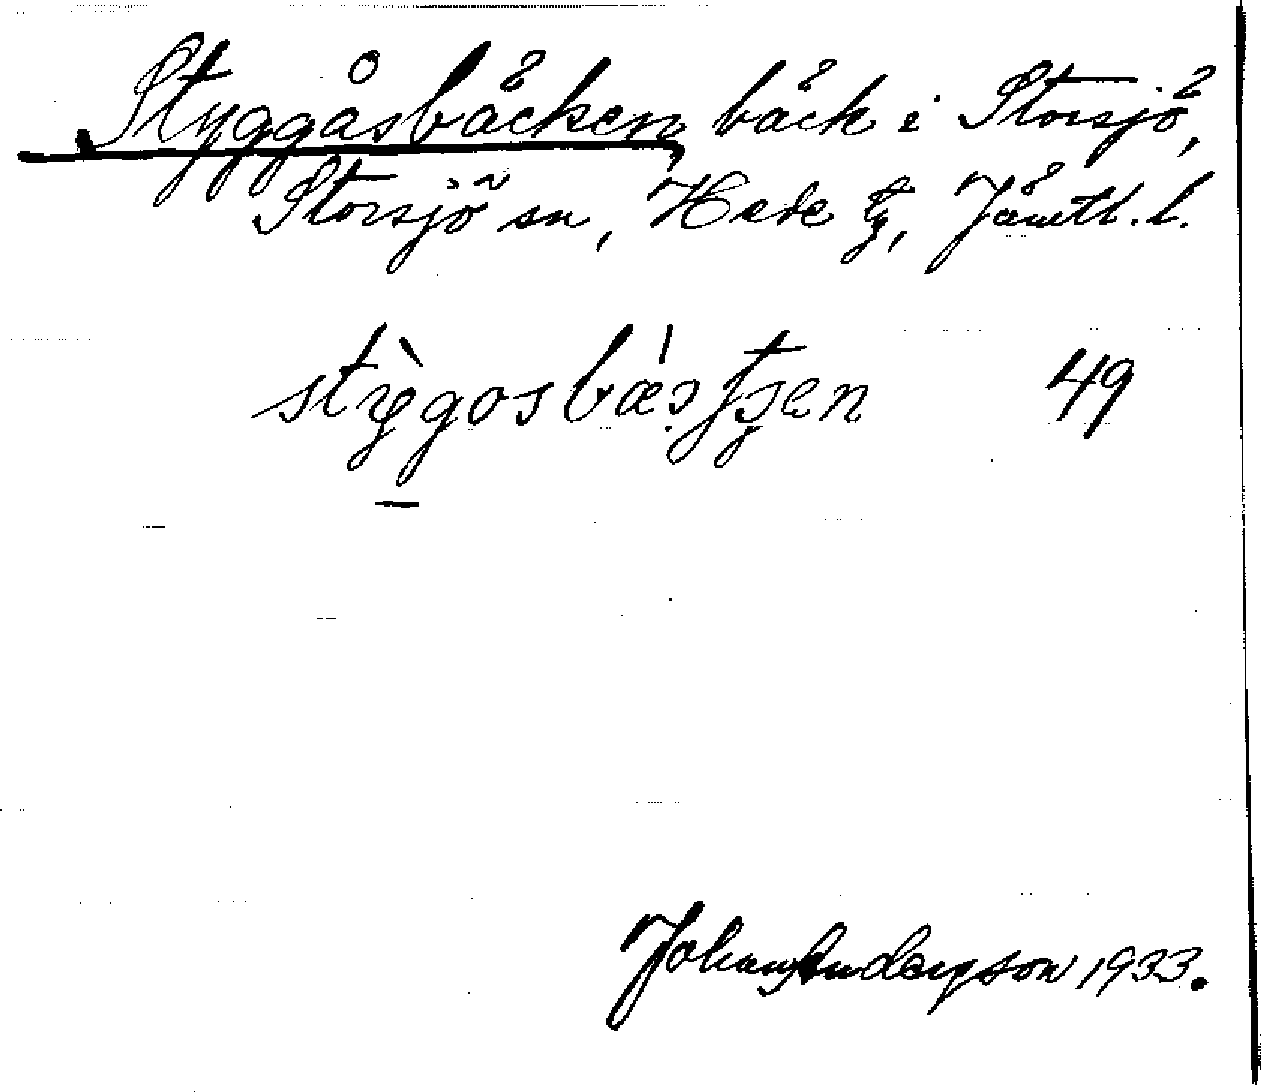 Styggåsbäcken, bäck i Storsjö,
Storsjö sn, Hede tg, Jämtl. l.
49
Johan Anderson 1933.